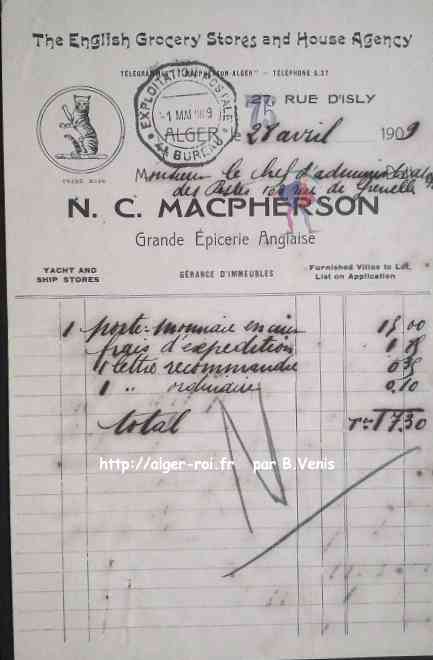 The English Grocery Stores and House Agency
TÉLÉGRAMMES "MACPHERSON-ALGER" - TÉLÉPHONE 5.37
EXPLOITATION POSTALE
-1 MAI 1909
4e BUREAU
75
27 RUE D'ISLY
TRADE MARK
ALGER, le 28 avril 1909
Monsieur le chef d'administration
des Postes 103 rue de Grenelle
N. C. MACPHERSON
Grande Épicerie Anglaise
YACHT AND
SHIP STORES
GÉRANCE D'IMMEUBLES
Furnished Villas to Let,
List on Application
1 porte-monnaie en cuir 15,00
frais d'expedition
1 lettre recommandée 0,35
1 " ordinaire 0,10
total 17,30
http://alger-roi.fr par B.Venis